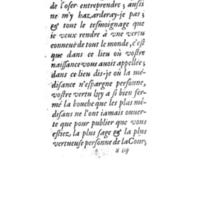 de l'oser entreprendre; aussi
ne m'y hazarderay-je pas;
& tout le tesmoignage que
ie veux rendre à vne vertu
conneuë de tout le monde, c'est
que dans ce lieu où vostre
naissance vous auoit appellée;
dans ce lieu dis-je où la mé-
disance n'espargne personne,
vostre vertu luy a si bien fer-
mé la bouche que les plus mé-
disans ne l'ont iamais ouuer-
te que pour publier que vous
estiez, la plus sage & la plus
vertueuse personne de la Cour,